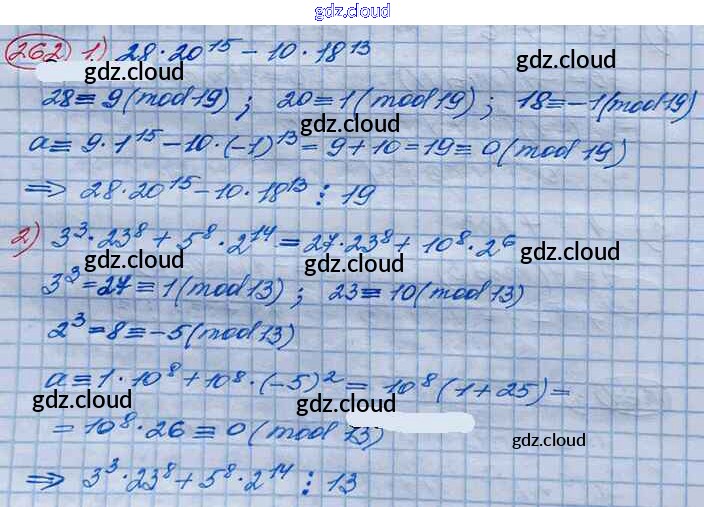 gdz.cloud
262 1) 28·20¹⁵ − 10·18¹³
gdz.cloud gdz.cloud
28 ≡ 9 (mod 19) ; 20 ≡ 1 (mod 19) ; 18 ≡ −1 (mod 19)
gdz.cloud
a ≡ 9·1¹⁵ − 10·(−1)¹³ = 9 + 10 = 19 ≡ 0 (mod 19)
⇒ 28·20¹⁵ − 10·18¹³ ⋮ 19
2) 3³·23⁸ + 5⁸·2¹⁴ = 27·23⁸ + 10⁸·2⁶
gdz.cloud gdz.cloud gdz.cloud
3³ = 27 ≡ 1 (mod 13) ; 23 ≡ 10 (mod 13)
2³ = 8 ≡ −5 (mod 13)
a ≡ 1·10⁸ + 10⁸·(−5)² = 10⁸(1 + 25) =
gdz.cloud gdz.cloud
= 10⁸·26 ≡ 0 (mod 13)
gdz.cloud
⇒ 3³·23⁸ + 5⁸·2¹⁴ ⋮ 13